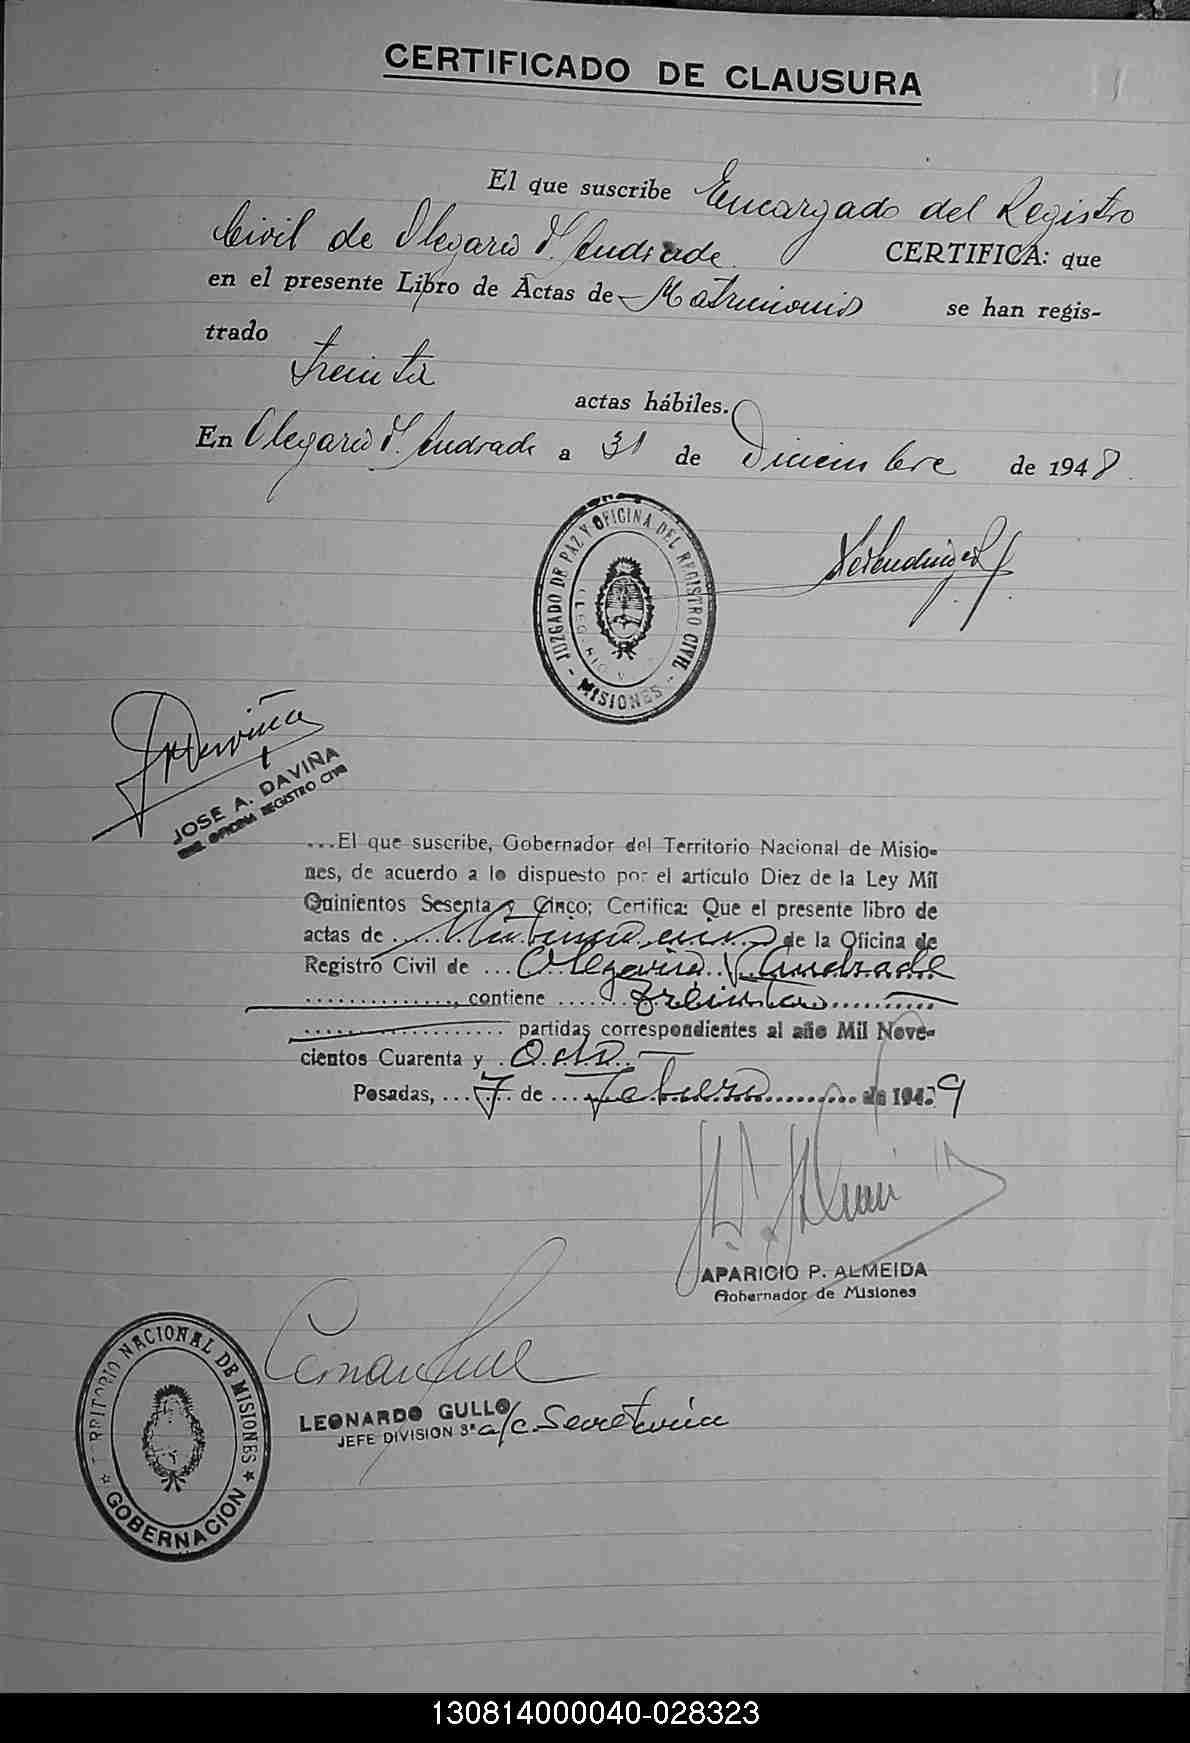 CERTIFICADO DE CLAUSURA
El que suscribe Encargado del Registro
Civil de Olegario V. Andrade CERTIFICA: que
en el presente Libro de Actas de Matrimonios se han regis-
trado
treinta
actas hábiles.
En Olegario V. Andrade a 31 de Diciembre de 1948.
JUZGADO DE PAZ Y OFICINA DEL REGISTRO CIVIL
- MISIONES -
JOSE A. DAVIÑA
OFICINA REGISTRO CIVIL
...El que suscribe, Gobernador del Territorio Nacional de Misio-
nes, de acuerdo a lo dispuesto por el artículo Diez de la Ley Mil
Quinientos Sesenta y Cinco; Certifica: Que el presente libro de
actas de ... Matrimonios ... de la Oficina de
Registro Civil de ... Olegario V. Andrade
..............., contiene ...... treinta ..........
.................... partidas correspondientes al año Mil Nove-
cientos Cuarenta y . Ocho ..
Posadas, ... 7 .. de ... Febrero .......... de 1949
APARICIO P. ALMEIDA
Gobernador de Misiones
TERRITORIO NACIONAL DE MISIONES
* GOBERNACION *
LEONARDO GULLO
JEFE DIVISION 3ª a/c. Secretaría
130814000040-028323